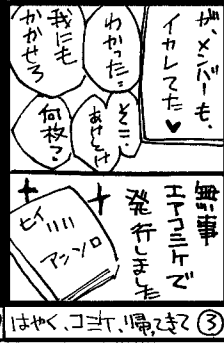 が、メンバーも、
イカレてた♥
わかった!
そこ!
あけとけ
我にも
かかせろ
何枚?
無事
エアコミケで
発行しました
ヒイ////
アンソロ
はやく、コミケ、帰ってきて③